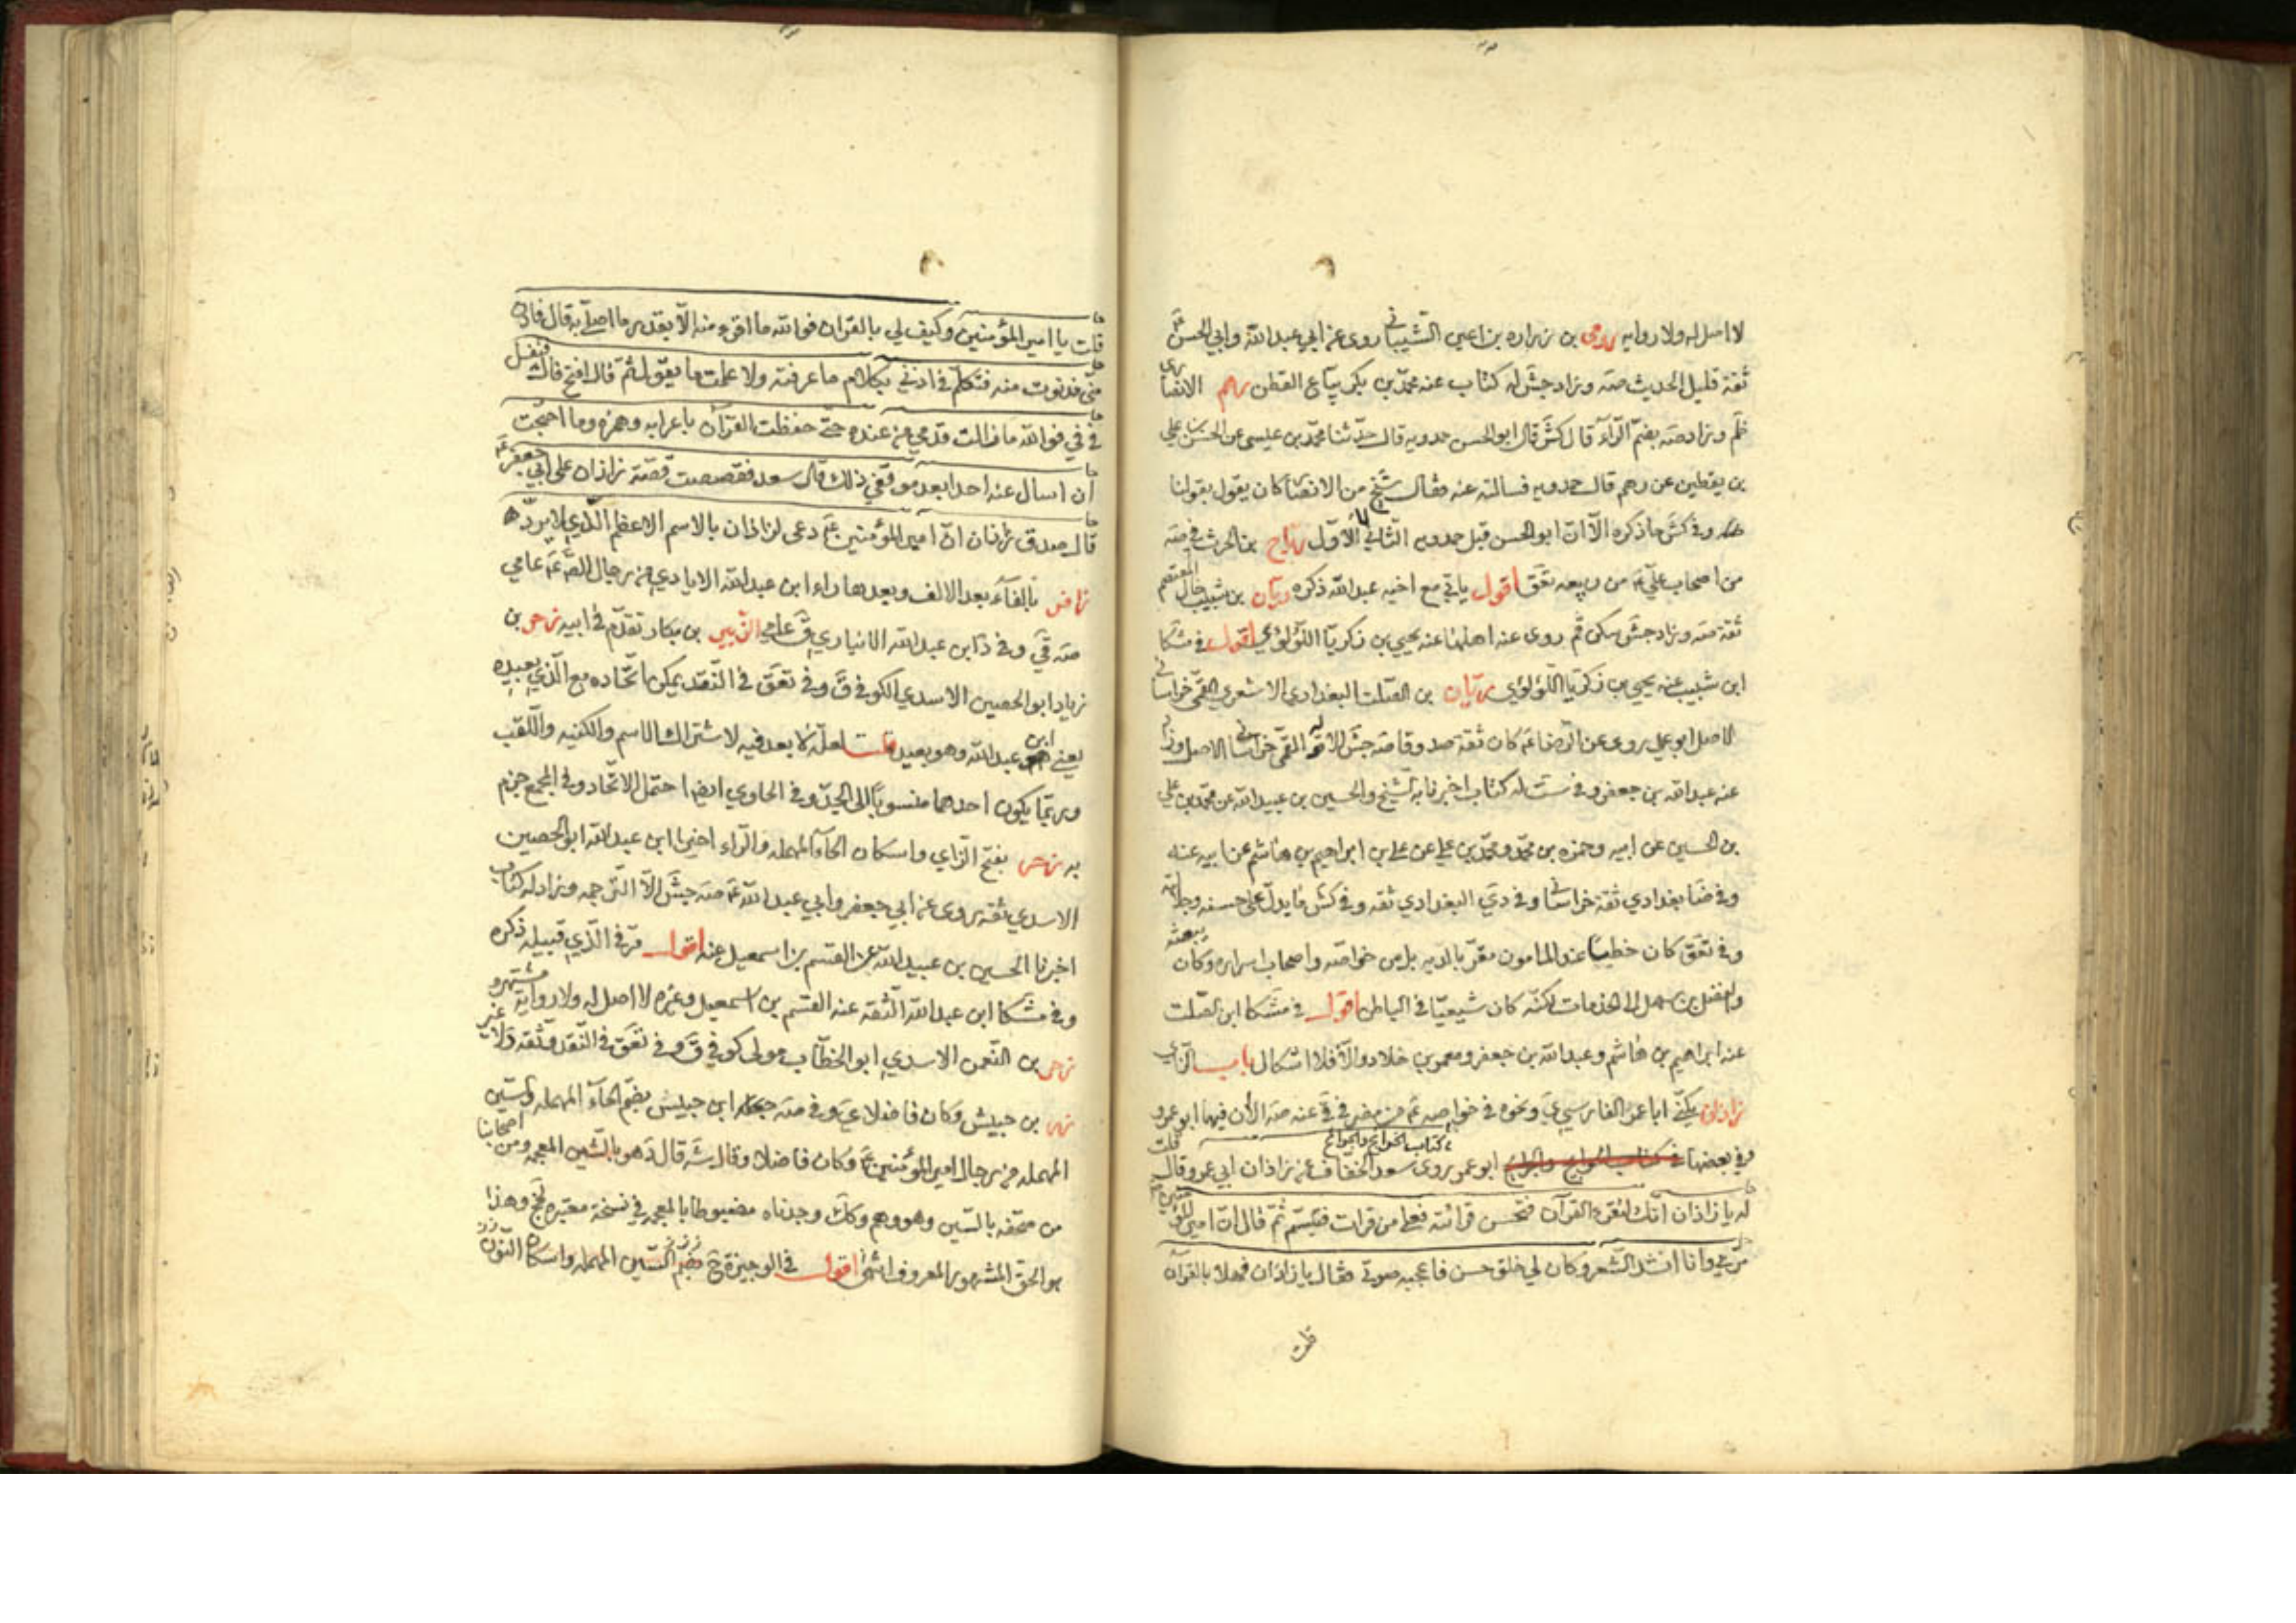 لا اصل له ولا روايه رومى بن زراره بن اعين الشيبانى روى عن ابي عبدالله وابي الحسن ع
ثقة قليل الحديث صه وزاد جش له كتاب عنه محمد بن بكر بياع القطن رهم الانصارى
ظم وزاد صه بضم الراء قال كش قال ابو الحسن حمدويه قال حدثنا محمد بن عيسى عن الحسن بن علي
بن يقطين عن رهم قال حمدويه فسالته عنه فقال شيخ من الانصار كان يقول بقولنا
وفي كش ما ذكره الا ان ابو الحسن قبل حمدويه الثاني لا الاول رياح بن الحرث في صه
من اصحاب علي ع من ربيعه تعق اقول ياتي مع اخيه عبدالله ذكره ريان بن شبيب خال المعتصم
ثقة صه وزاد جش سكن قم روى عنه اهلها عنه يحيى بن زكريا اللؤلؤي اقول في مشكا
ابن شبيب عنه يحيى بن زكريا اللؤلؤي ريان بن الصلت البغدادى الاشعري القمي خراسانى
الاصل ابو علي روى عن الرضا ع كان ثقة صدوقا صه جش الا القمى خراسانى الاصل وزاد
عنه عبدالله بن جعفر وفي ست له كتاب اخبرنا به الشيخ والحسين بن عبيدالله عن محمد بن علي
بن الحسين عن ابيه وحمزه بن محمد ومحمد بن علي عن علي بن ابراهيم بن هاشم عن ابيه عنه
وفي ضا بغدادي ثقة خراسانى وفي دي البغدادي ثقه وفي كش ما يدل على حسنه وجلالته
وفي تعق كان خطيبا عند المامون مقربا لديه بل من خواصه واصحاب اسراره وكان يبعثه
والفضل بن سهل الى الخدمات لكنه كان شيعيا في الباطن اقول في مشكا ابن الصلت
عنه ابراهيم بن هاشم وعبدالله بن جعفر ومعمر بن خلاد والا فلا اشكال باب الزاي
زاذان يكنى ابا عمر الفارسي ي ونحوه في خواصه ع من مضر في ق عنه صه الا ان فيها ابو عمرو
وفي بعضها كتاب الخرايج والجرايح ابو عمر روى سعد الخفاف عن زاذان ابي عمرو قال قلت
له يا زاذان انك لتقرء القرآن فتحسن قرائته فعلى من قرات فتبسم ثم قال ان امير المؤمنين ع
مر بي وانا انشد الشعر وكان لي خلق حسن فاعجبه صوتي فقال يا زاذان فهلا بالقرآن
قلت
قلت يا امير المؤمنين وكيف لي بالقران فوالله ما اقرء منه الا بقدر ما اصلي به قال فادن
منى فدنوت منه فتكلم في اذني بكلام ما عرفته ولا علمت ما يقول ثم قال افتح فاك فتفل
في في فوالله ما زالت قدمي من عنده حتى حفظت القرآن باعرابه وهمزه وما احتجت
ان اسال عنه احدا بعد موقفي ذلك قال سعد فقصصت قصة زاذان على ابي جعفر ع
قال صدق زاذان ان امير المؤمنين ع دعى لزاذان بالاسم الاعظم الذي لا يرد
زافر بالفاء بعد الالف وبعدها راء ابن عبدالله الايادي من رجال الصادق ع عامي
صه قي وفي د ابن عبدالله الانباري ق عامي الزبير بن بكار تقدم في ابيه زحر بن
زياد ابو الحصين الاسدي الكوفي ق وفي تعق في النقد يمكن اتحاده مع الذي بعيده
يعنى ابن عبدالله وهو بعيد قلت لعله لا بعد فيه لاشتراك الاسم والكنيه واللقب
وربما يكون احدهما منسوبا الى الجد وفي الحاوي ايضا احتمل الاتحاد وفي المجمع جزم
به زحر بفتح الزاي واسكان الحاء المهمله والراء اخيرا ابن عبدالله ابو الحصين
الاسدي ثقه روى عن ابي جعفر وابي عبدالله ع صه جش الا الترجمه وزاد له كتاب
اخبرنا الحسين بن عبيدالله عن القسم بن اسمعيل عنه اقول مر في الذي قبيله ذكره
وفي مشكا ابن عبدالله الثقة عنه القسم بن اسمعيل وغيره لا اصل له ولا رواية مشتهره
زحر بن النعمن الاسدي ابو الخطاب مولى كوفي ق وفي تعق في النقد وثقه د غير
زر بن حبيش وكان فاضلا ي وفي صه ابن حبيش بضم الحاء المهمله والسين
المهمله من رجال امير المؤمنين ع وكان فاضلا وقال شه قال د هو بالشين المعجمه ومن اصحابنا
من صحفه بالسين وهو وهم وكك وجدناه مضبوطا بالمعجمه في نسخة معتبره لجخ وهذا
هو الحق المشهور المعروف انتهى اقول في الوجيزة ح بضم السين المهمله واسكان النون